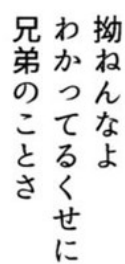 拗ねんなよ
わかってるくせに
兄弟のことさ